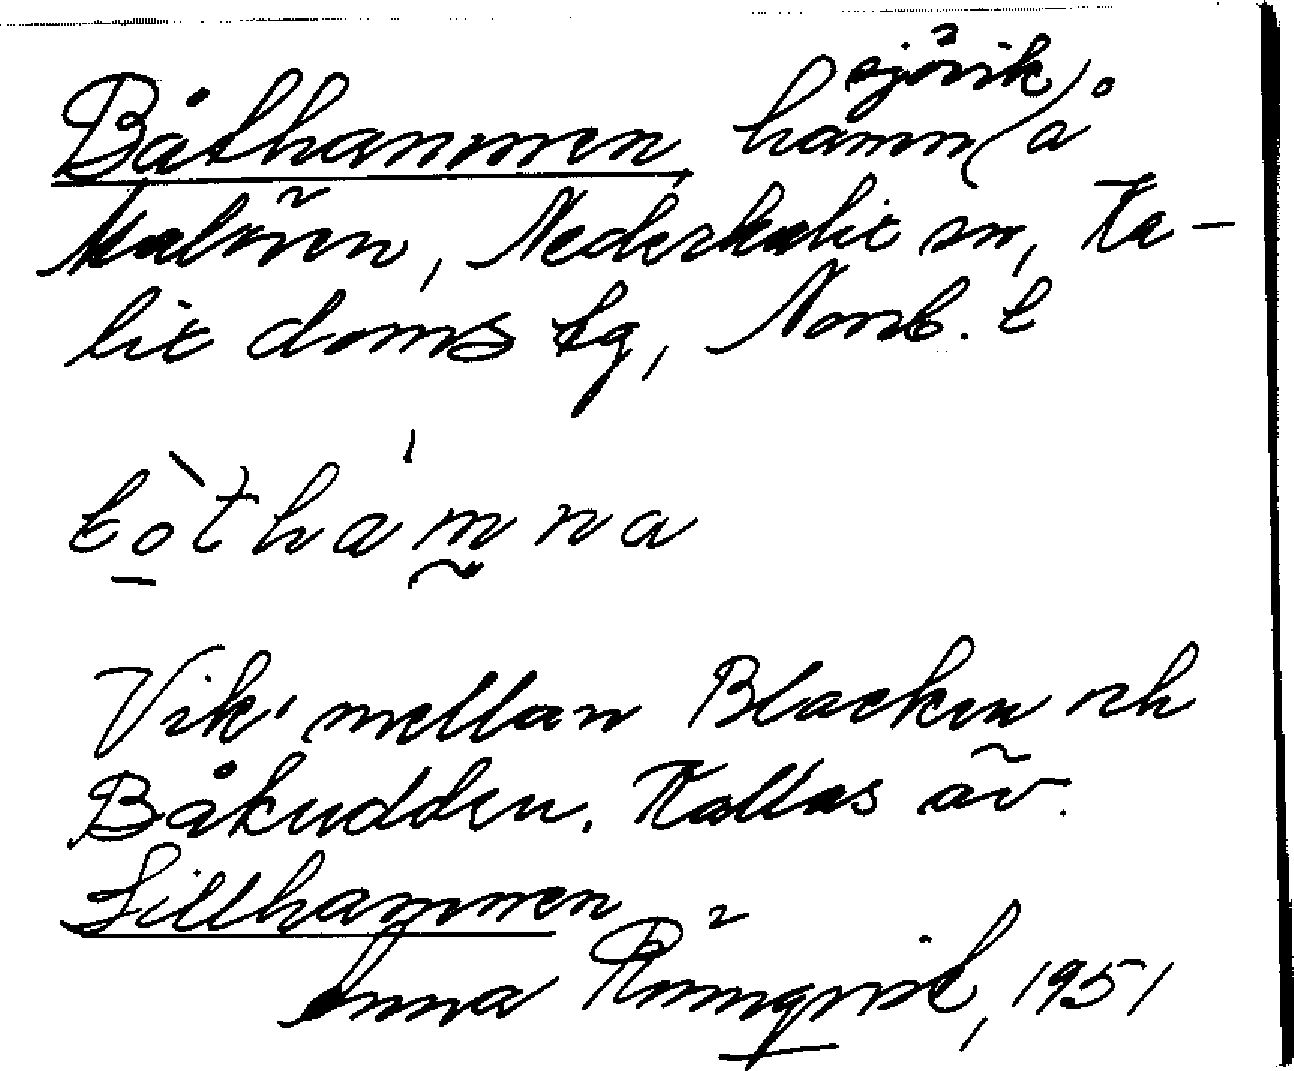 sjövik
Båthamnen hamn / å
Malören, Nederkalix sn, Ka-
lix doms tg, Norrb. l
bòthámna
Vik mellan Blacken och
Båkudden. Kallas äv.
Lillhamnen
Anna Rönnqvist, 1951